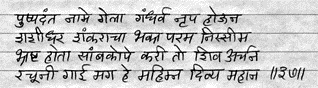 पुष्पदंत नामे गेला गंधर्व नृप होऊन
शशीधर शंकराचा भक्त परम निस्सीम
भ्रष्ट होता सांबकोपे करी तो शिव अर्चन
रचूनी गाई मग हे महिम्न दिव्य महान ॥३७॥